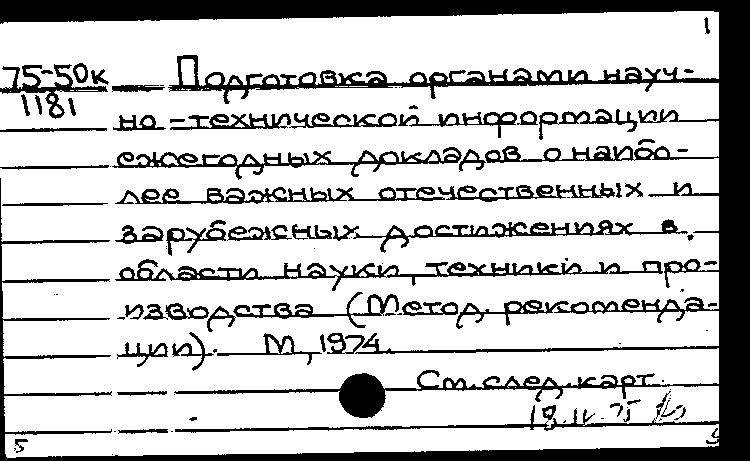 1
75-50к Подготовка органами науч-
1181
но-технической информации
ежегодных докладов о наибо-
лее важных отечественных и
зарубежных достижениях в
области науки, техники и про-
изводства (Метод. рекоменда-
ции). М, 1974.
См. след. карт.
18.IV.75
5